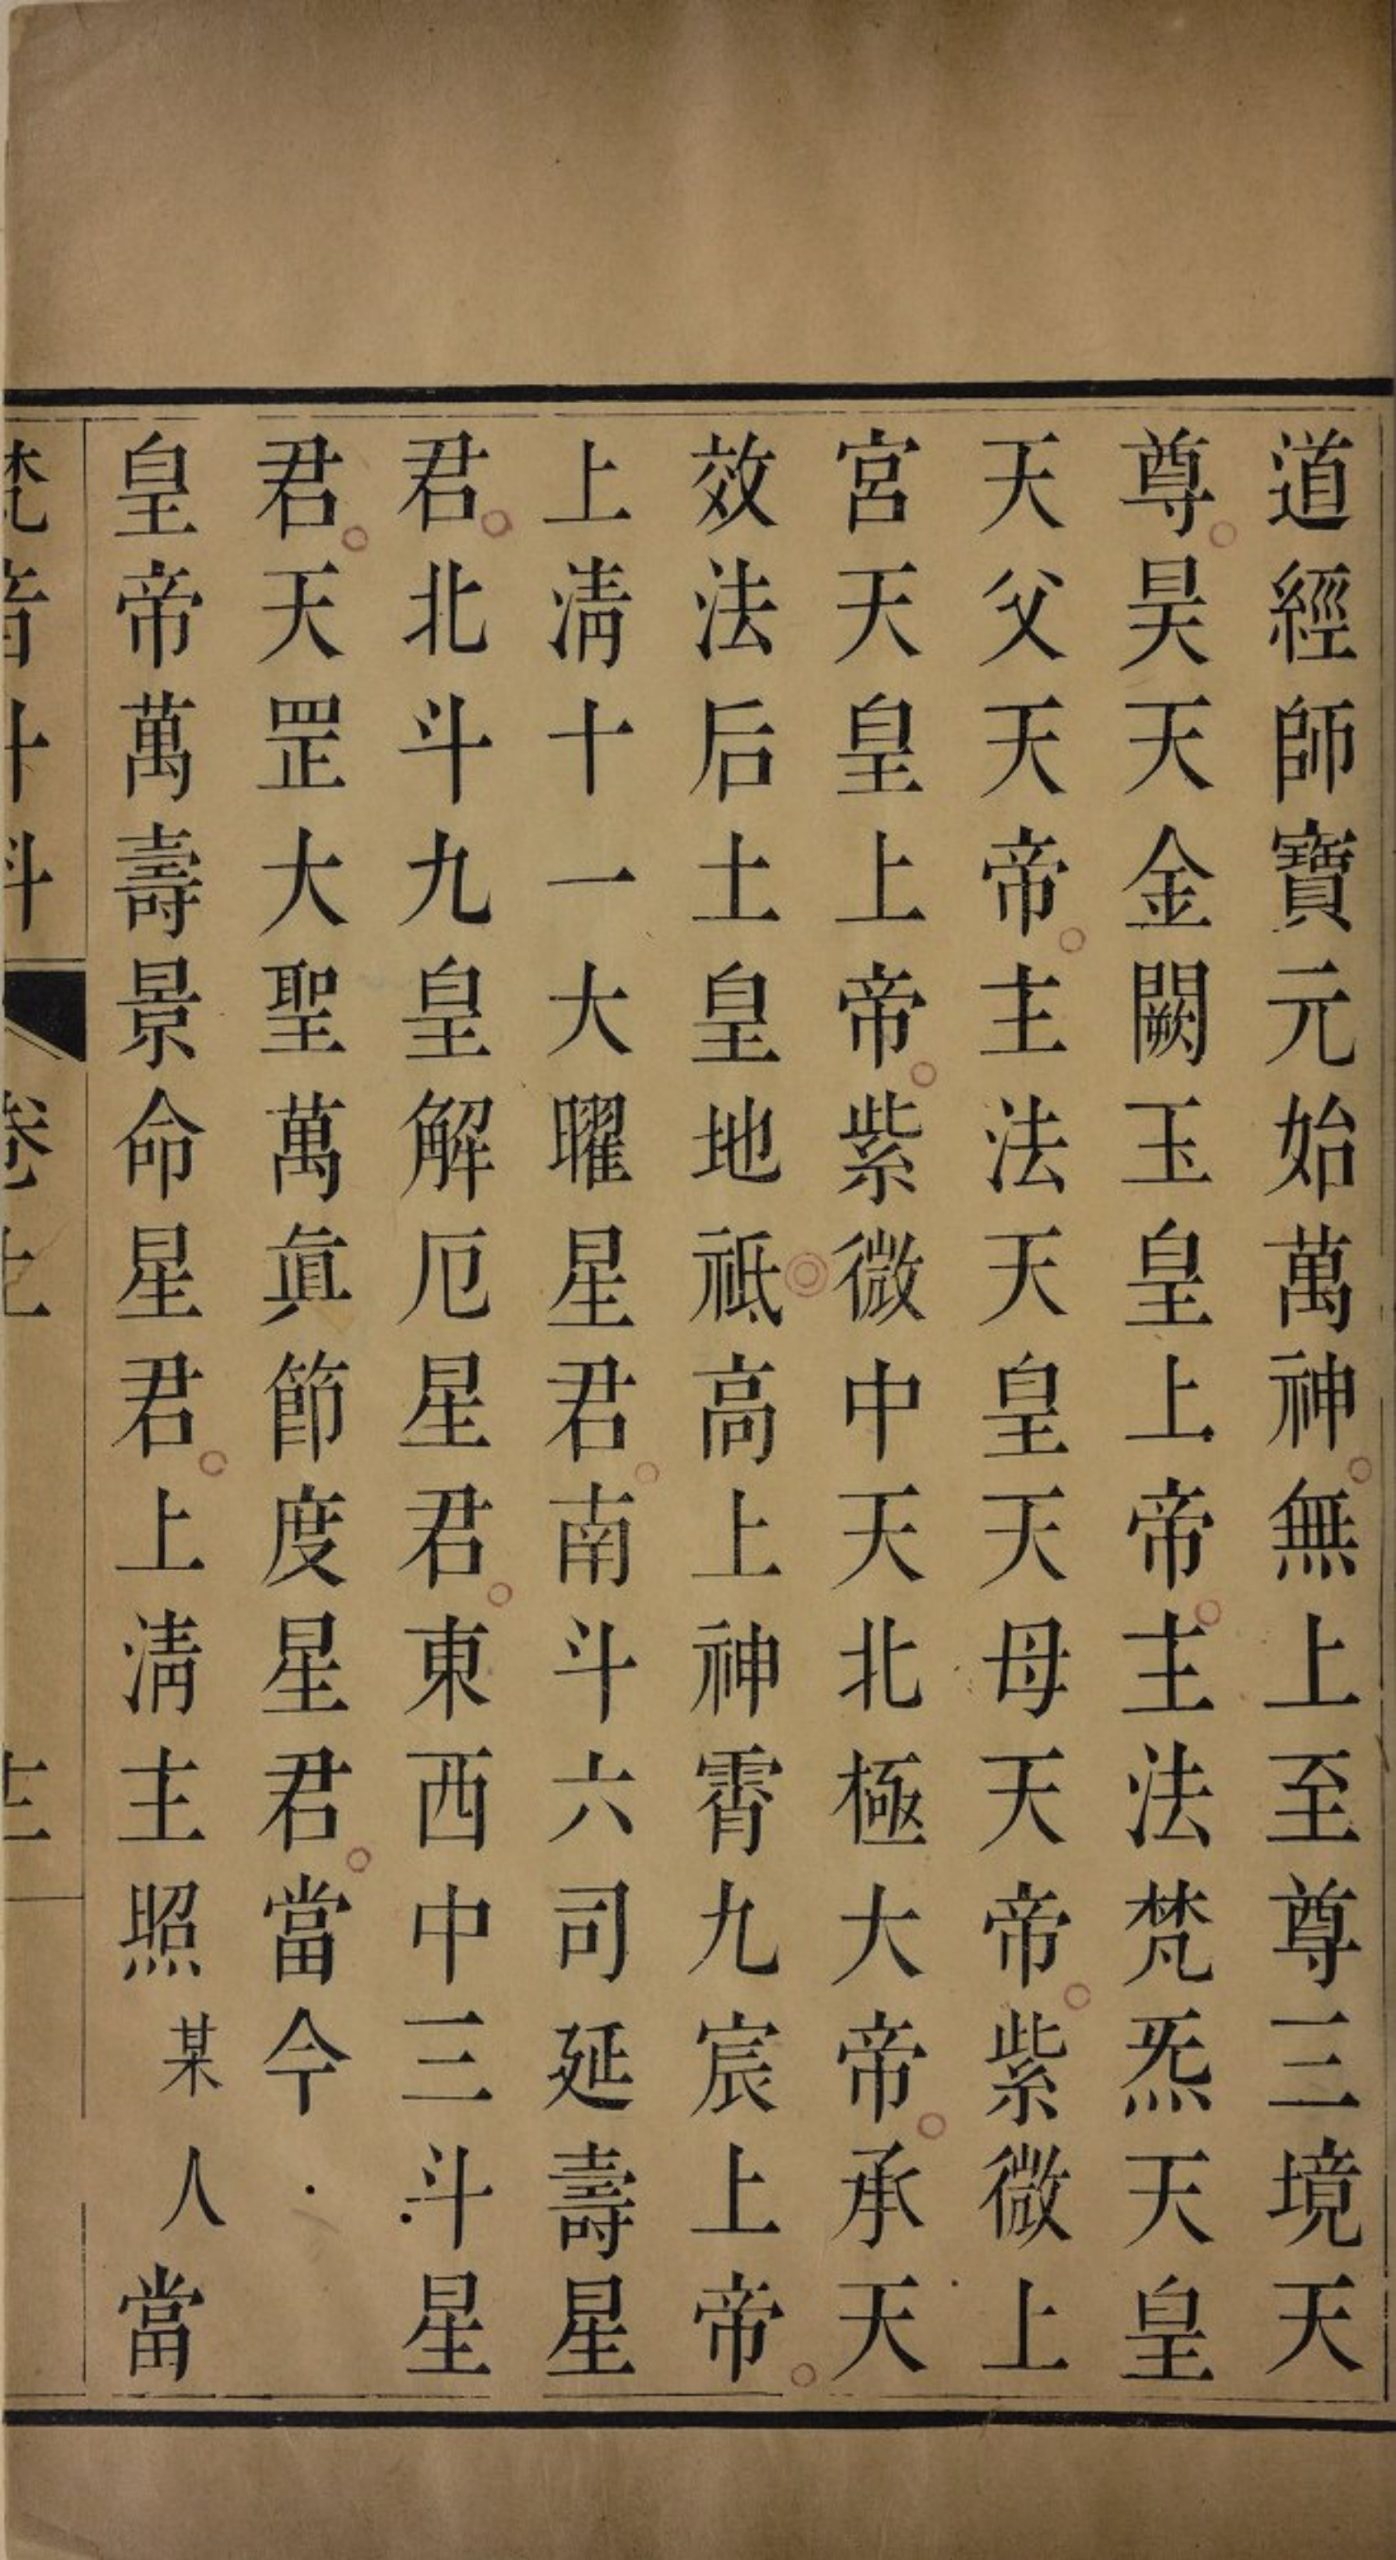 道經師寶元始萬神無上至尊三境天
尊昊天金闕玉皇上帝主法梵炁天皇
天父天帝主法天皇天母天帝紫微上
宮天皇上帝紫微中天北極大帝承天
效法后土皇地祗高上神霄九宸上帝
上淸十一大曜星君南斗六司延壽星
君北斗九皇解厄星君東西中三斗星
君天罡大聖萬眞節度星君當今
皇帝萬壽景命星君上淸主照某人當
梵音斗科 卷上